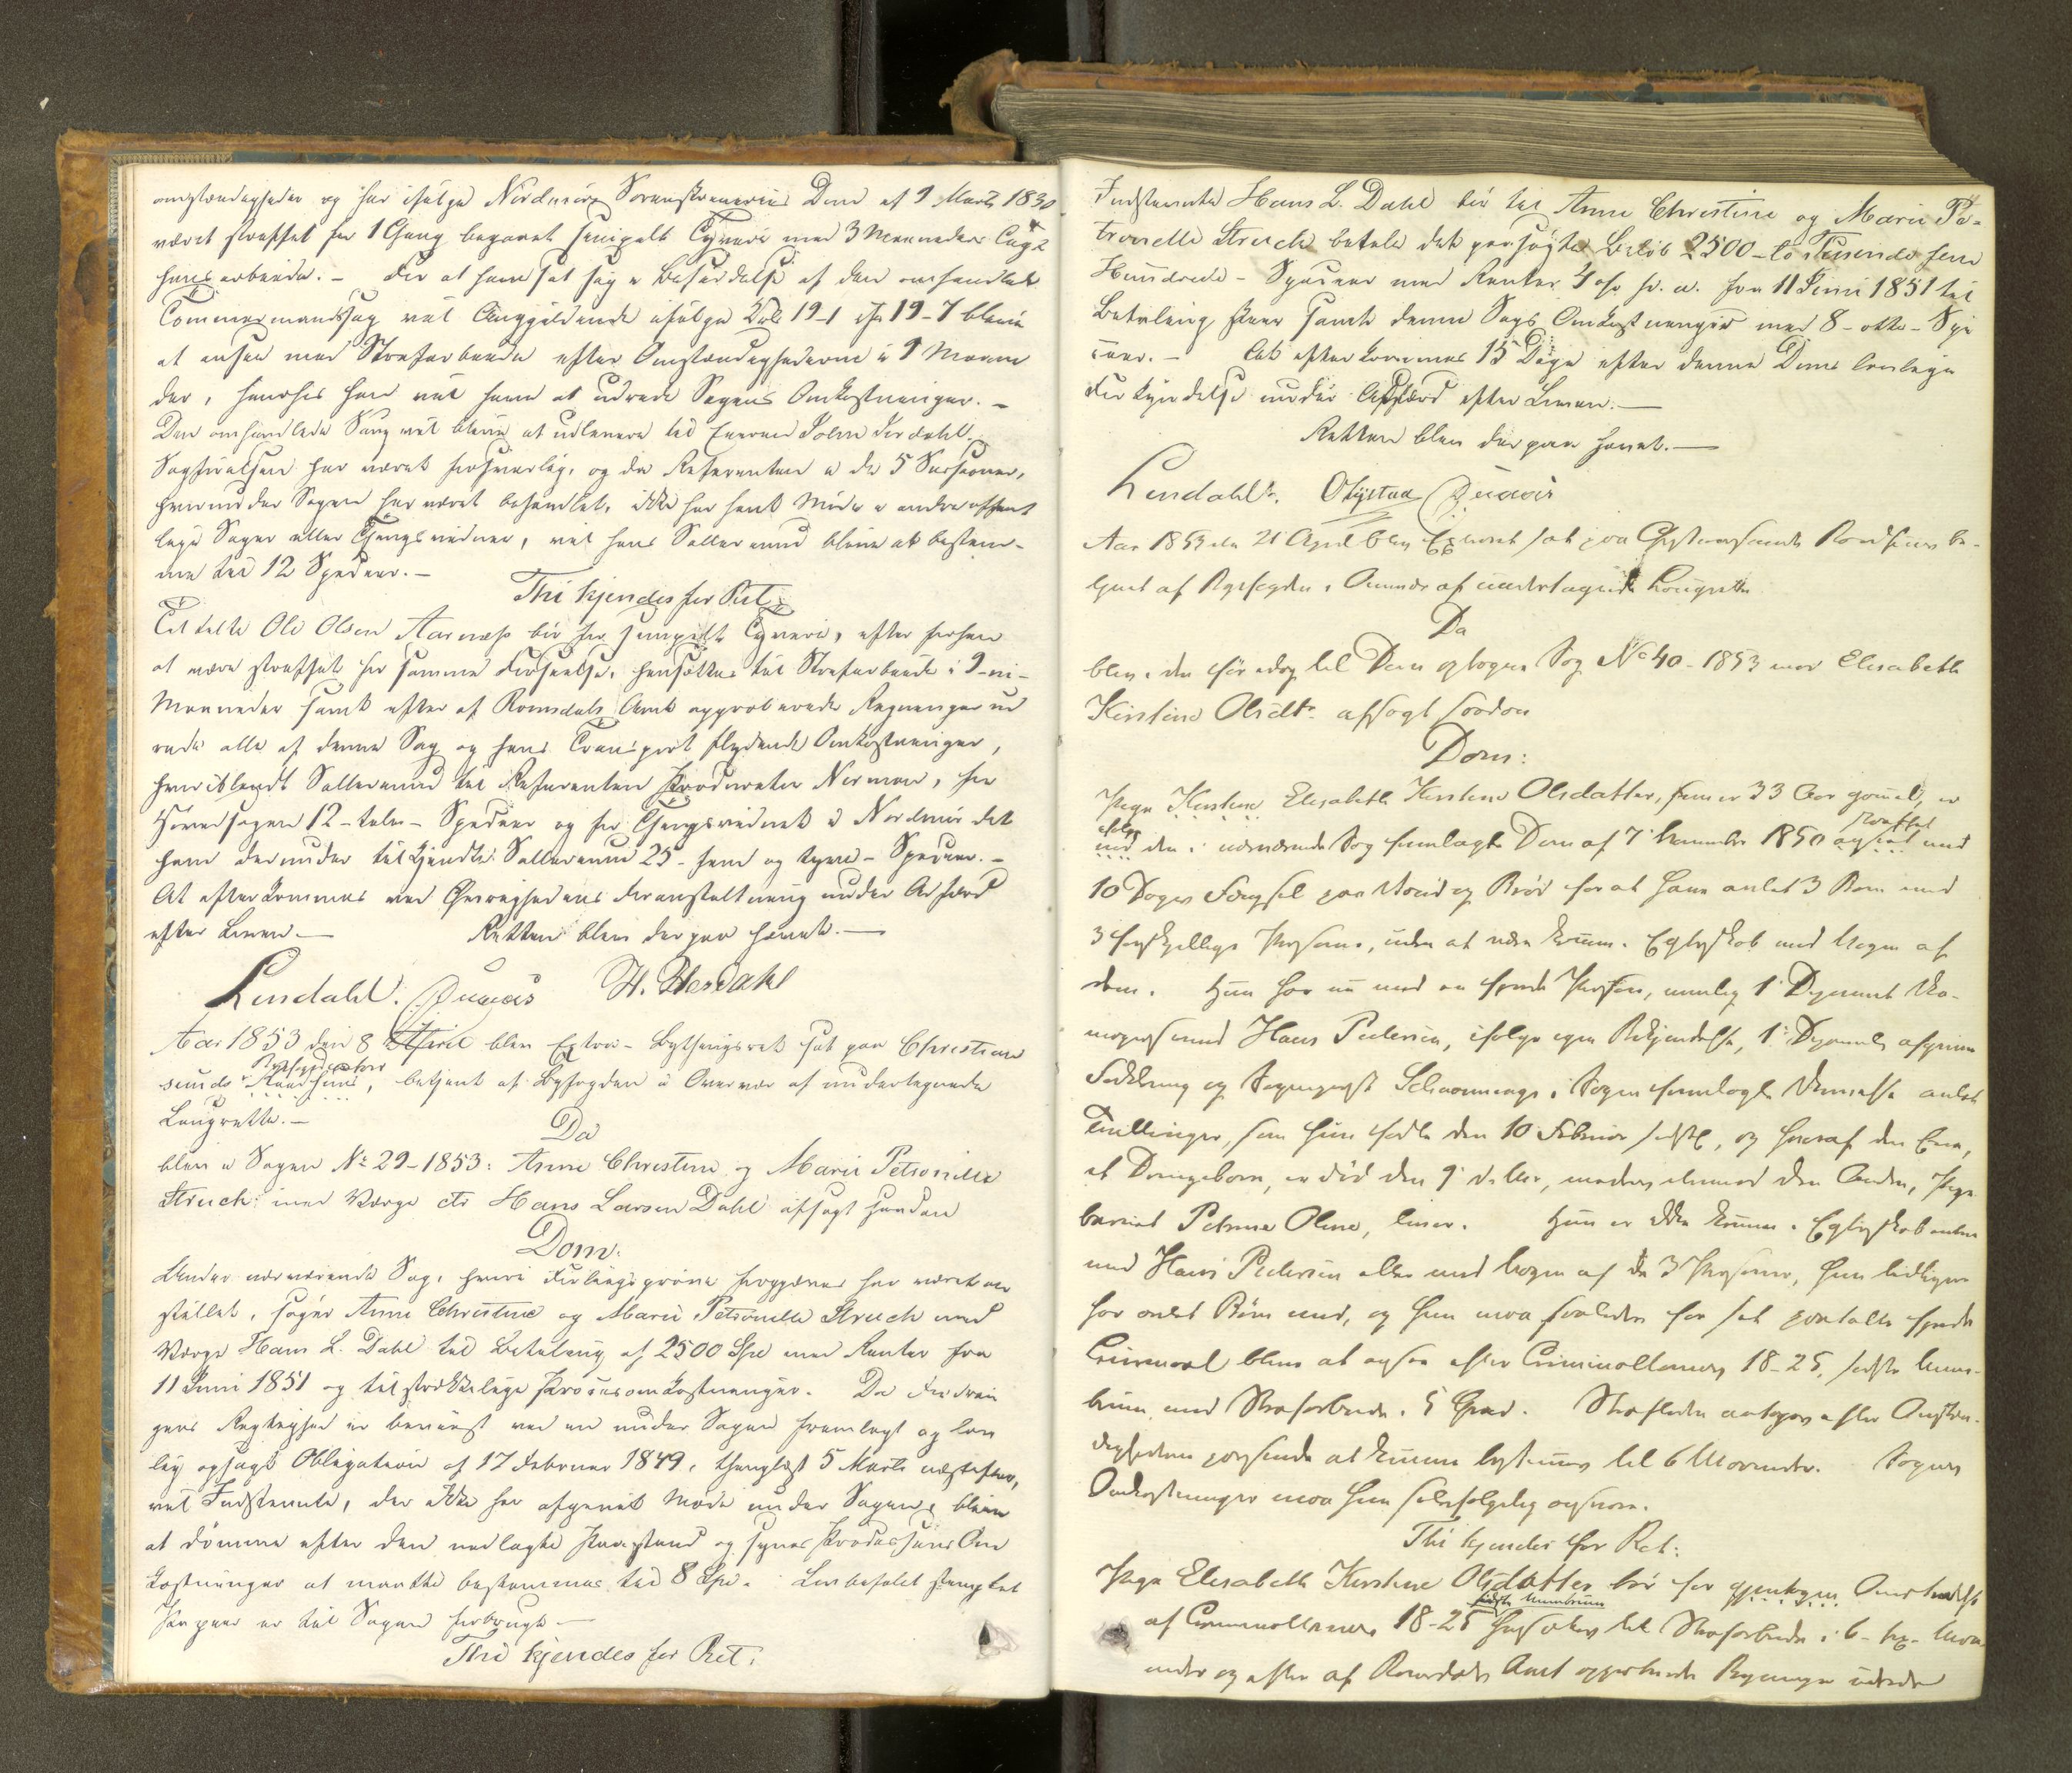 omstændigheder og har ifølge Nordmøre Sorenskriveries Dom af 9 Marts 1830
været straffet for 1 Gang begaaet simpelt Tyveri med 3 Maaneders Tugt
huusarbeide. – For at have sat sig i Besiddelse af den omhandlede
Tømmermandssag vil Angjældende ifølge 19-1 19-7 blive
at ansee med Strafarbeide efter Omstændighederne i 9 Maane
der, hvorhos han vil have at udrede Sagens Omkostninger. –
Den omhandlede Saug vil blive at udlevere til Eieren
Sagførelsen har været forsvarlig, og da Referenten i de 5 Sessioner,
hvorunder Sagen har været behandlet, ikke har havt Møde i andre offent
lige Sager eller Thingsvidner, vil hans Sallarium blive at bestem-
me til 12 Spdaler. –
Thi kjendes for Ret:
Tiltalte Ole Olsen Aarnæss bør for simpelt Tyveri, efter forhen
at være straffet for samme Forseelse, hensættes til Strafarbeide i 9-ni-
Maaneder samt efter af Romsdals Amt approberede Regninger ud
rede alle af denne Sag og hans Transport flydende Omkostninger,
heriblandt Sallarium til Referenten Procurator Norman, for
Hovedsagen 12-tolv- Spdaler og for Thingsvidnet i Nordmør det
ham derunder tilkjendte Sallarium 25- fem og tyve- Spdaler. –
At efterkommes ved Øvrighedens Foranstaltning under Adfærd
efter Loven. – Retten blev derpaa hævet. –
Lindahl.
Aar 1853 den 8 April blev Extra- Bythingsret sat paa Christian
sunds Raadhuus, betjent af Byfogden i Overvær af undertegnede
Laugrette. –
Da
blev i Sagen No 29-1853: Anne Christine og Marie Petronille
Struch med Værge ctr Hans Larsen Dahl afsagt saadan
Dom.
Under nærværende Sag, hvori Forligsprøve forgjæves har været an
stillet, søger Anne Christine og Marie Petronille Struch med
Værge Hans L. Dahl til Betaling af 2500 Spd med Renter fra
11 Juni 1851 og tilstrækkelige Procesomkostninger. Da Fordrin
gens Rigtighed er beviist ved en under Sagen fremlagt og lov
lig opsagt Obligation af 17 Februar 1849, thinglæst 5 Marts næstefter,
vil Indstevnte, der ikke har afgivet Møde under Sagen, blive
at dømme efter den nedlagte Paastand og synes Processens Om
kostninger at maatte bestemmes til 8 Spd. Lovbefalet stemplet
Papiir er til Sagen forbrugt –
Thi kjendes for Ret:
Indstevnte Hans L. Dahl bør til Anne Christine og Marie Pe-
tronelle Struch betale det paasøgte Beløb 2500- to Tusende fem
Hundrede- Spdaler med Renter 4 pr. a. fra 11 Juni 1851 til
Betaling skeer samt denne Sags Omkostninger med 8- otte- Spd
aler. – At efterkommes 15 Dage efter denne Doms lovlige
Forkyndelse under Adfærd efter Loven. –
Retten blev derpaa hævet. –
Lindahl.
Aar 1853 den 21 April blev Extraret sat paa Christiansunds Raadhuus be-
tjent af Byfogden i Overvær af undertegnede Laugrette
Da
blev i den før idag til Dom optagne Sag No 40-1853 mod Elisabeth
Kirstine Olsdtr. afsagt saadan
Dom:
Pige Kirstine Elisabeth Kirstine Olsdatter, som er 33 Aar gammel, er
ifølge den i nærværende Sag fremlagte Dom af 7 November 1850 straffet med
10 Dages Fængsel paa Vand og Brød for at have avlet 3 Børn med
3 forskjellige Personer, uden at være kommen i Egteskab med Nogen af
dem. Hun har nu med en fjerde Person, nemlig
Hans Pedersen, ifølge egen Bekjendelse,
i Sagen fremlagte avlet
Tvillinger, som hun fødte den 10 Februar sidstl., og hvoraf den Ene,
et Drengebarn, er død den 9 , medens derimod den Anden, Pige
barnet Petrine Oline, lever. Hun er ikke kommen i Egteskab enten
med Hans Pedersen eller med Nogen af de 3 Personer, hun tidligere
har avlet Børn med, og hun maa saaledes for sit paatalte fjerde
Leiermaal blive at ansee efter Criminallovens 18-25, sidste Mem-
brum med Strafarbeide i 5 Grad. Straffetiden antages efter Omstæn-
dighederne passende at kunne bestemmes til 6 Maaneder. Sagens
Omkostninger maa hun selvfølgelig
Thi kjendes for Ret:
Pige Elisabeth Kirstine Olsdatter bør for
af Criminallovens 18-25 sidste Membrum hensættes til Strafarbeide i 6- sex- Maa
neder og efter af Romsdals Amt approberede Regninger udrede